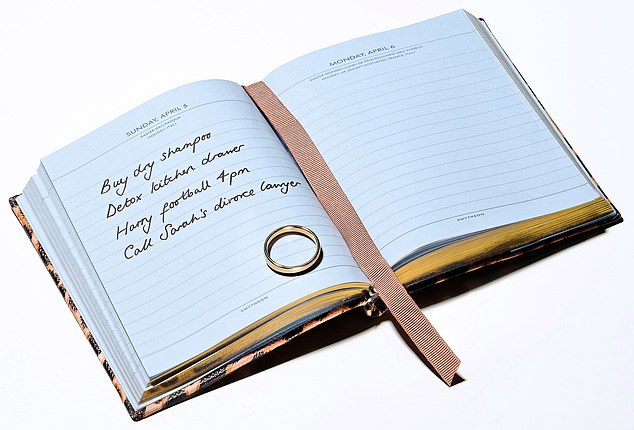 SUNDAY, APRIL 5
Buy dry shampoo
Detox kitchen drawer
Harry football 4pm
Call Sarah's divorce lawyer
SMYTHSON
MONDAY, APRIL 6
SMYTHSON